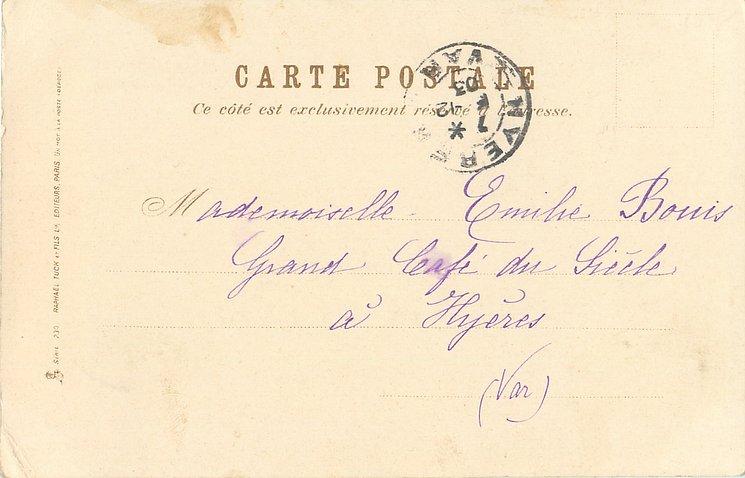 CARTE POSTALE
Ce côté est exclusivement réservé à l'adresse.
HYÈRES
VAR
7
12
03
Mademoiselle Emilie Bouis
Grand Café du Siècle
à Hyères
(Var)
SÉRIE 230 RAPHAEL TUCK ET FILS LD, EDITEURS, PARIS